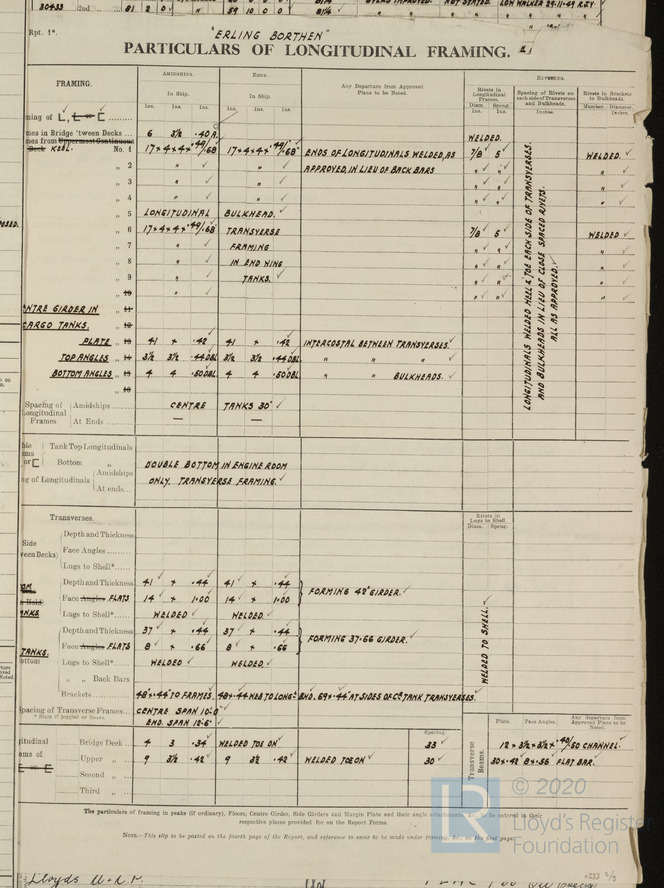 30433 2nd „ 81 2 0 „ 59 10 0 0 81/4 NOT STATED. LOW WALKER 29-11-49 R.S.Y.
Rpt. 1*.
"ERLING BORTHEN"
PARTICULARS OF LONGITUDINAL FRAMING.
FRAMING. AMIDSHIPS. ENDS. Any Departure from Approved Plans to be Noted. RIVETING.
In Ship. In Ship. Rivets in Longitudinal Frames. Spacing of Rivets on each side of Transverses and Bulkheads. Rivets in Brackets to Bulkheads.
Ins. Ins. Ins. Ins. Ins. Ins. Diam. Spcng. Inches. Number. Diameter.
Ins. Ins. Inches
ming of L, L or C
mes in Bridge 'tween Decks ... 6 3½ .40 A. WELDED.
mes from Uppermost Continuous
Deck KEEL. No. 1 17 × 4 × 4 × .49/.68 17 × 4 × 4 × .49/.68 ENDS OF LONGITUDINALS WELDED, AS 7/8 5 WELDED.
„ 2 „ „ APPROVED, IN LIEU OF BACK BARS „ „ „
„ 3 „ „ „ „ „
„ 4 „ „ „ „ „
„ 5 LONGITUDINAL BULKHEAD.
„ 6 17 × 4 × 4 × .49/.68 TRANSVERSE 7/8 5 WELDED
„ 7 „ FRAMING „ „ „
„ 8 „ IN END WING „ „ „
„ 9 „ TANKS. „ „ „
„ 10 „ „ „ „
LONGITUDINALS WELDED HEEL & TOE EACH SIDE OF TRANSVERSES.
AND BULKHEADS IN LIEU OF CLOSE SPACED RIVETS.
ALL AS APPROVED.
NTRE GIRDER IN „ 11
CARGO TANKS. „ 12
PLATE „ 13 41 × .42 41 × .42 INTERCOSTAL BETWEEN TRANSVERSES.
TOP ANGLES „ 14 3½ 3½ .44 DBL 3½ 3½ .44 DBL „ „ „
BOTTOM ANGLES „ 15 4 4 .50 DBL 4 4 .50 DBL „ „ BULKHEADS.
„ 16
Spacing of Longitudinal Frames Amidships ....... CENTRE TANKS 30"
At Ends ....... — —
Tank Top Longitudinals
Bottom „ DOUBLE BOTTOM IN ENGINE ROOM
ng of Longitudinals Amidships ONLY, TRANSVERSE FRAMING.
At ends...
Transverses. Rivets in Lugs to Shell. Diam. Spcng.
Side Depth and Thickness
ween Decks) Face Angles ........
Lugs to Shell* ......
Depth and Thickness 41 × .44 41 × .44 FORMING 42" GIRDER.
Hold) Face Angles FLATS 14 × 1.00 14 × 1.00
NKS Lugs to Shell* ...... WELDED WELDED.
Depth and Thickness 37 × .44 37 × .44 FORMING 37.66 GIRDER.
TANKS. Face Angles FLATS 8 × .66 8 × .66
ottom Lugs to Shell* ...... WELDED WELDED.
„ „ Back Bars
WELDED TO SHELL.
Brackets ........ 48 × .44 TO FRAMES. 48 × .44 TO LONGL BHD. 69 × .44 AT SIDES OF CR. TANK TRANSVERSES.
Spacing of Transverse Frames CENTRE SPAN 10'-0"
* State if joggled or liners. END. SPAN 12'-6"
Spacing. Transverse Beams. Plate. Face Angles. Any departure from Approved Plans to be Noted.
gitudinal Bridge Deck ... 4 3 .34 WELDED TOE ON 33 12 × 3½ × 3½ × .40/.50 CHANNEL.
ams of Upper „ ... 9 3½ .42 9 3½ .42 WELDED TOE ON 30 30 × .42 8 × .56 FLAT BAR.
Second „ ...
Third „ ...
The particulars of framing in peaks (if ordinary), Floors, Centre Girder, Side Girders and Margin Plate and their angle attachments, &c., to be entered in their
respective places provided for on the Report Forms.
NOTE.—This slip to be pasted on the fourth page of the Report, and reference to same to be made under framing, &c., on the first page.
LR © 2020
Lloyd's Register
Foundation
Lloyds
0233 2/3